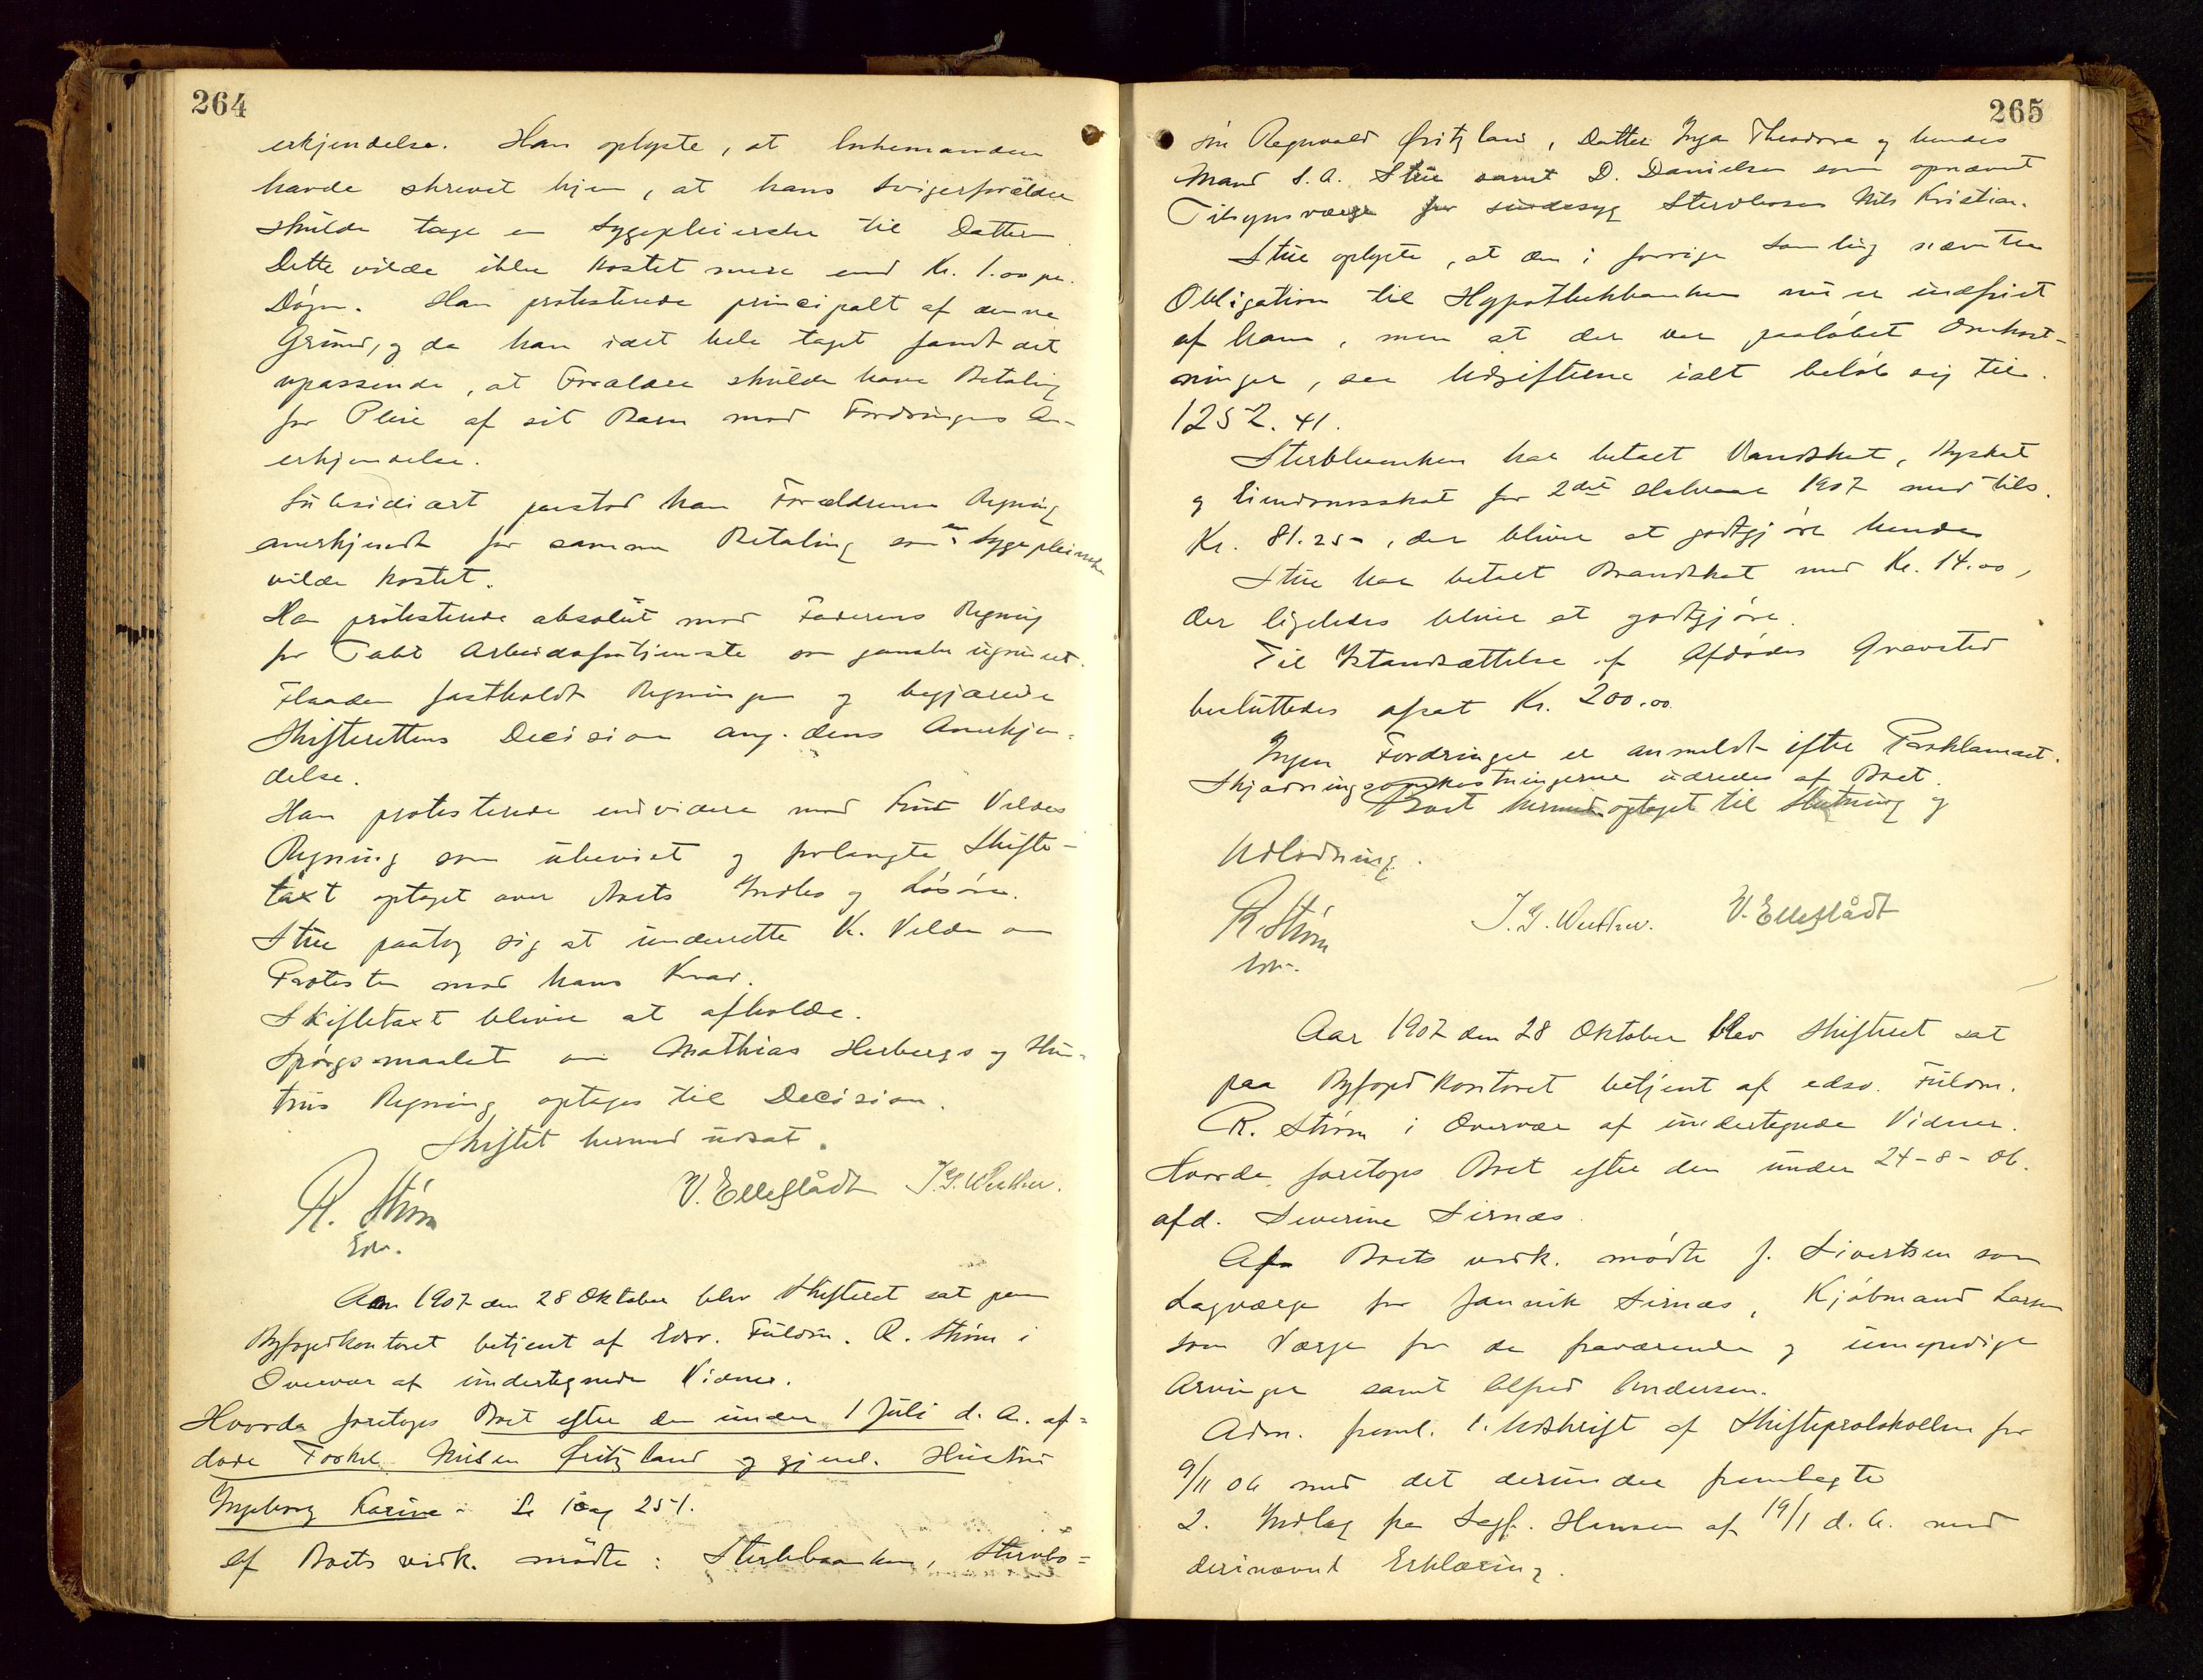 264
erkjendelse. Han oplyste, at Enkemanden
havde skrevet hjem, at hans Svigerforældre
skulde tage en Sygepleierske til Datteren
Dette vilde ikke kostet mere end Kr. 1.00 pr.
Døgn. Han protesterede principalt af denne
Grund, og da han idet hele taget fandt det
upassende, at Forældre skulde have Betaling
for Pleie af sit Barn mod Fordringens An-
erkjendelse.
Subsidiært paastod han Forældrenes Regning
anerkjendt for samme Betaling som en Sygepleierske
vilde kostet.
Han protesterede absolut mod Faderens Regning
for Tabt Arbeidsfortjeneste som ganske ugrundet.
Flaaden fastholdt Regningen og begjærede
Skifterettens Decision ang. dens Anerkjen-
delse.
Han protesterede endvidere mod Fru Veldes
Regning som ubevist og forlangte Skifte-
taxt optaget over Boets Indbo og Løsøre.
Stue paatog sig at underrette K. Velde om
Protesten mod hans Krav.
Skiftetaxt bliver at afholde.
Spørgsmaalet om Mathias Herbergs og Hus-
trus Regning optages til Decision.
Skiftet hermed udsat.
R. Strøm V. Ellefslådt J. G. Werkner.
Edsv.
Aar 1907 den 28 Oktober blev Skifteret sat paa
Byfogedkontoret betjent af Edsv. Fuldm. R. Strøm i
Overvær af undertegnede Vidner.
Hvorda foretoges Boet efter den under 1 Juli d. A. af-
døde Torkel Nilsen Øritzland og gjenl. Hustru
Ingeborg Karine - Se Pag 251.
Af Boets vedk. mødte: Sterbboenken, Stervbo-
265
søn Regnvald Øritzland, Datter Inga Theodora og hendes
Mand S. A. Stue samt D. Danielsen som opnævnt
Tilsynsværge for sindssyg Stervboson Nils Kristian.
Stue oplyste, at den i forrige Samling nævnte
Obligation til Hypothekbanken nu er indfriet
af ham, men at der var paaløbet Omkost-
ninger, saa Udgifterne ialt beløb sig til
1252.41.
Sterbboenken har betalt Vandskat, Byskat
og Eiendomsskat for 2det Halvaar 1907 med tils.
Kr. 81.25-, der bliver at godtgjøre hende
Stue har betalt Brandskat med Kr. 14.00,
der ligeledes bliver at godtgjøre.
Til Istandsættelse af Afdødes Gravsted
besluttedes afsat Kr. 200.00
Ingen Fordringer er anmeldt efter Proklamaet.
Skjødningsomkostningerne udredes af Boet.
Boet hermed optaget til Slutning og
Udlodning.
R. Strøm J. G. Werkner. V. Ellefslådt
Edsv.
Aar 1907 den 28 Oktober blev Skifteret sat
paa Byfogdkontoret betjent af edsv. Fuldm.
R. Strøm i Overvær af undertegnede Vidner.
Hvorda foretoges Boet efter den under 24-8-06.
afd. Severine Sirnæs.
Af Boets vedk. mødte J. Sivertsen som
Lagværge for Jannik Sirnæs, Kjøbmand Larsen
som Værge for de fraværende og umyndige
Arvinger samt Alfred Andersen.
Adm. freml. 1. Udskrift af Skifteprotokollen for
9/11 06 med det derunder fremlagte
2. Indlæg fra Sagf. Hansen af 19/1 d. A. med
derinævnt Erklæring.